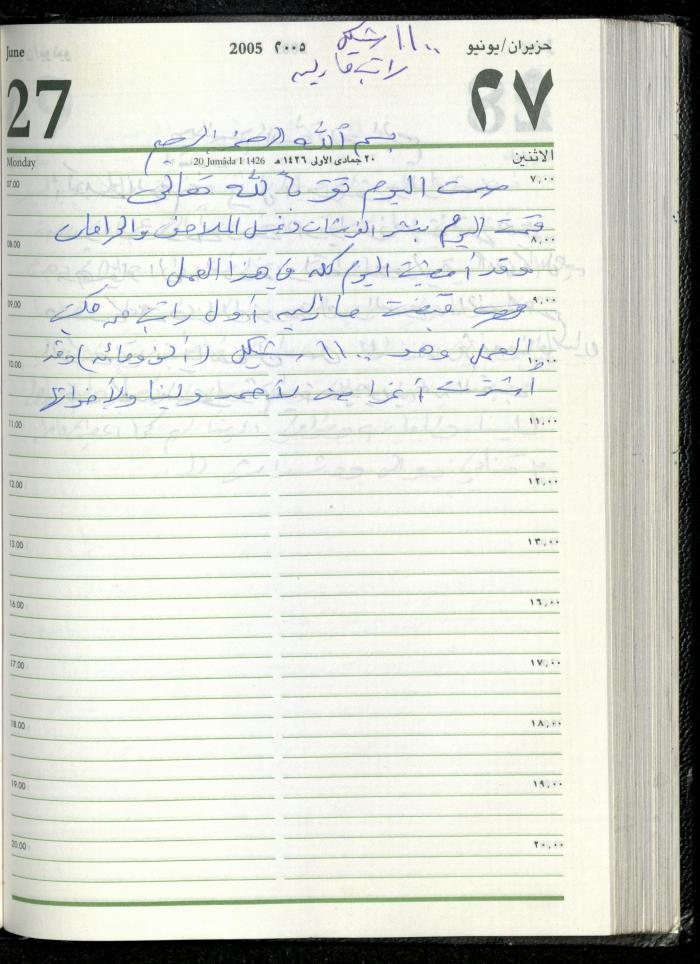 June 2005 ٢٠٠٥ ١١٠٠ شيكل حزيران/يونيو
راتب ماريه
27 ٢٧
بسم الله الرحمن الرحيم
Monday 20 Jumâda I 1426 ٢٠ جمادى الأولى ١٤٢٦ هـ الاثنين
07.00 صمت اليوم تقرباً لله تعالى ٧,٠٠
قمت اليوم بنشر الفرشات وغسل الملاحف والحرامات
08.00 ٨,٠٠
وقد أمضيت اليوم كله في هذا العمل
09.00 قبضت ماريه أول راتب من مكتب ٩,٠٠
10.00 العمل وهو ١١٠٠ شيكل (ألف ومائه) وقد ١٠,٠٠
اشترت أغراض لأحمد ولينا ولأخواتها
11.00 ١١,٠٠
12.00 ١٢,٠٠
13.00 ١٣,٠٠
16.00 ١٦,٠٠
17.00 ١٧,٠٠
18.00 ١٨,٠٠
19.00 ١٩,٠٠
20.00 ٢٠,٠٠